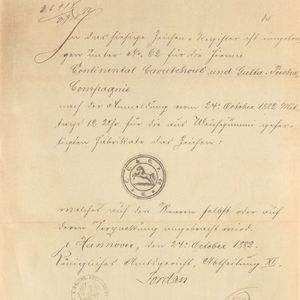 In das hiesige Zeichen-Register ist eingetra-
gen unter No. 62 für die Firma
Continental Caoutchouc und Gutta-Percha
Compagnie
nach der Anmeldung vom 24. October 1882 Mit-
tags 12 Uhr für die aus Weichgummi gefer-
tigten Fabrikate das Zeichen:
welches auf den Waaren selbst oder auf
deren Verpackung angebracht wird.
Hannover, den 24. October 1882.
Königliches Amtsgericht, Abtheilung XI.
Jordan